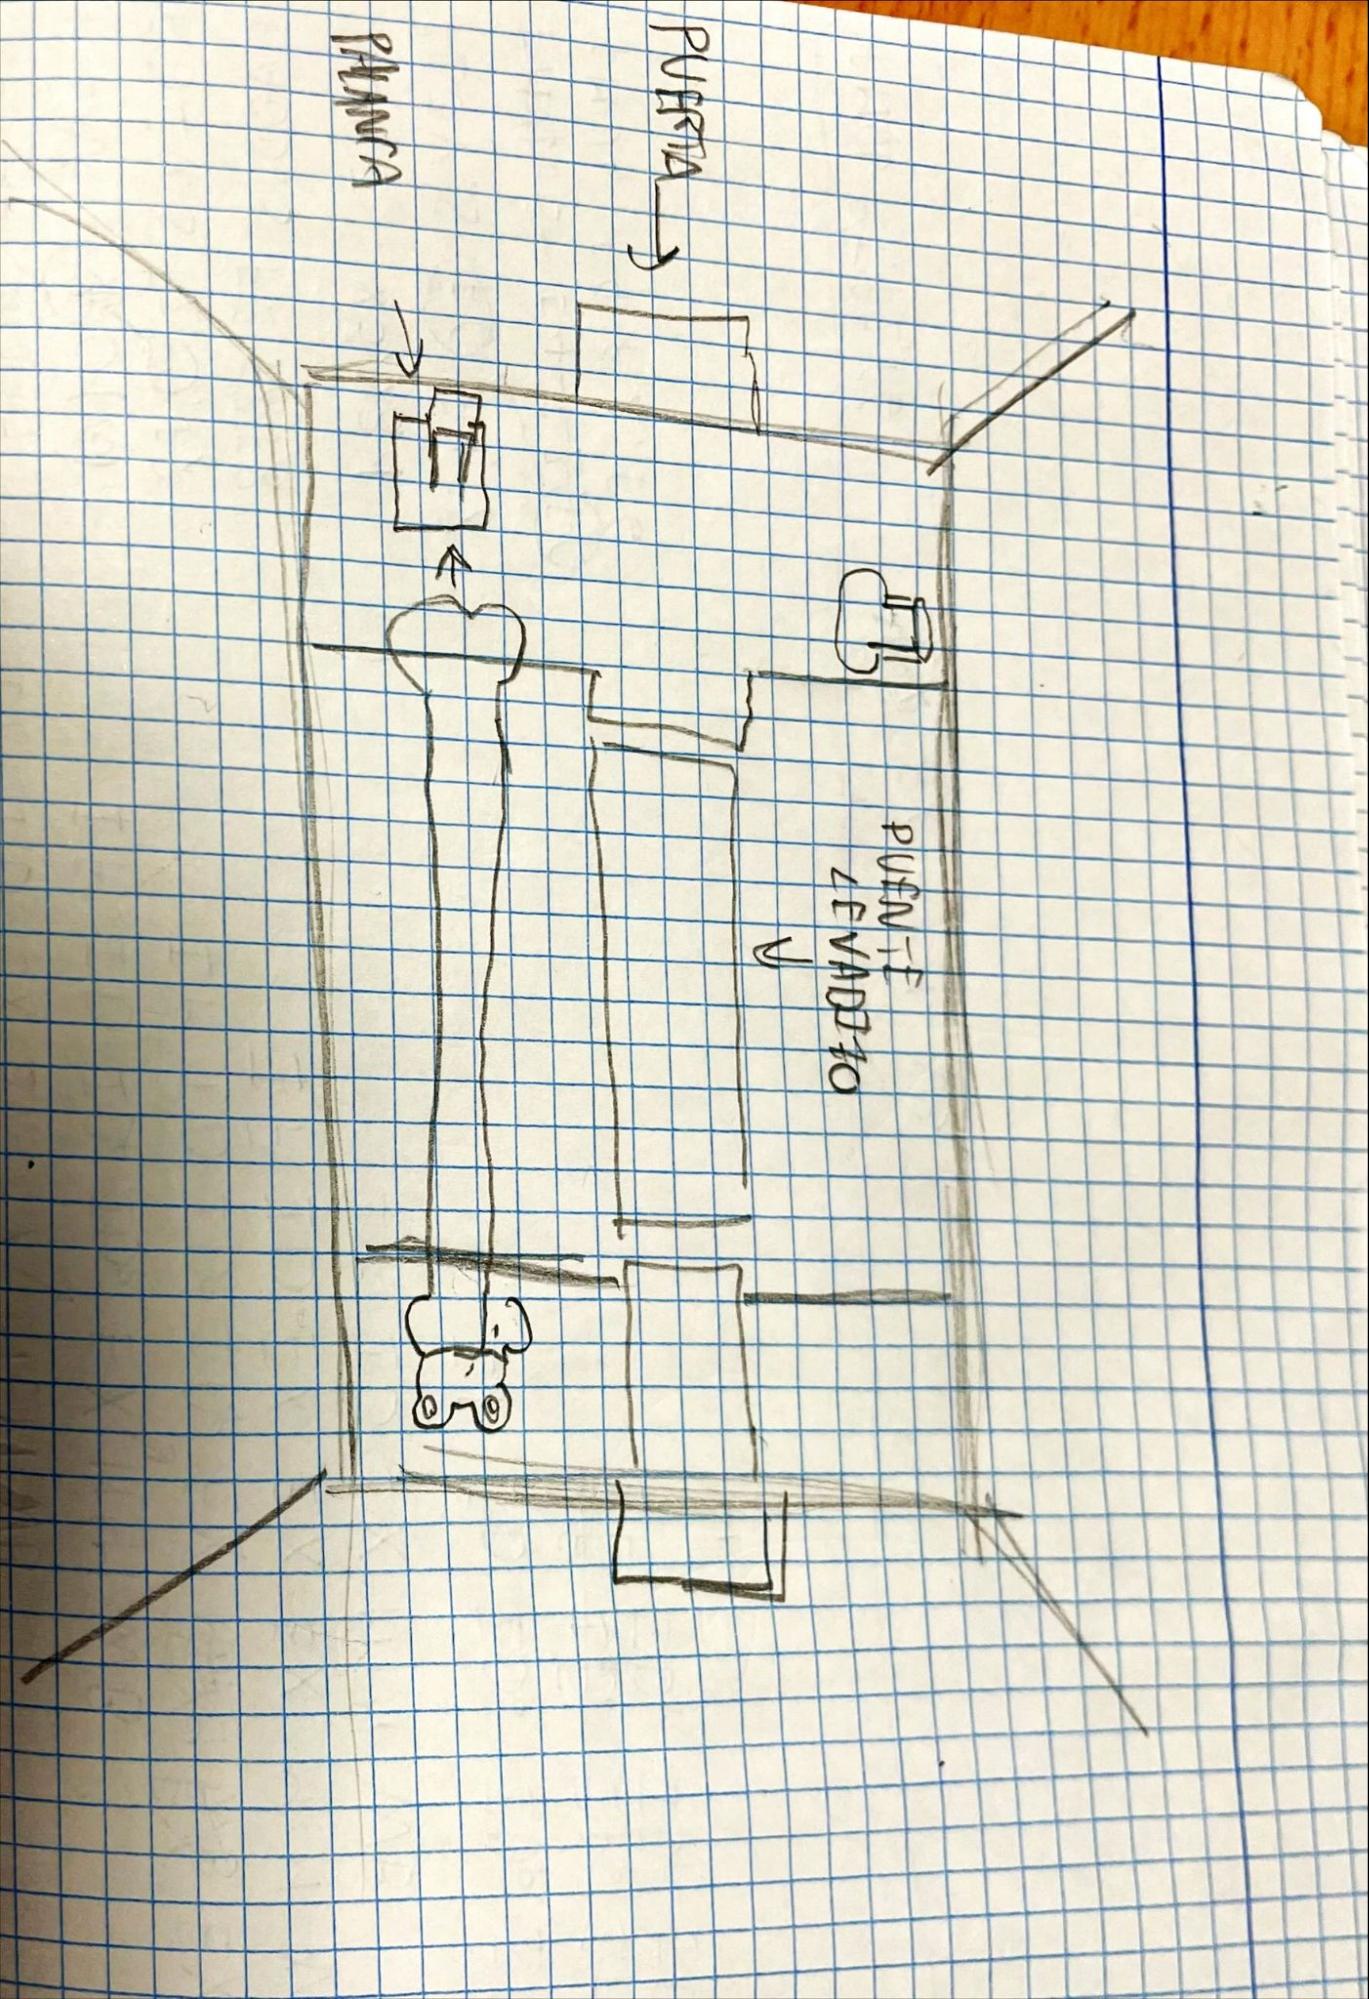 PUENTE
LEVADIZO
PUERTA
PALANCA